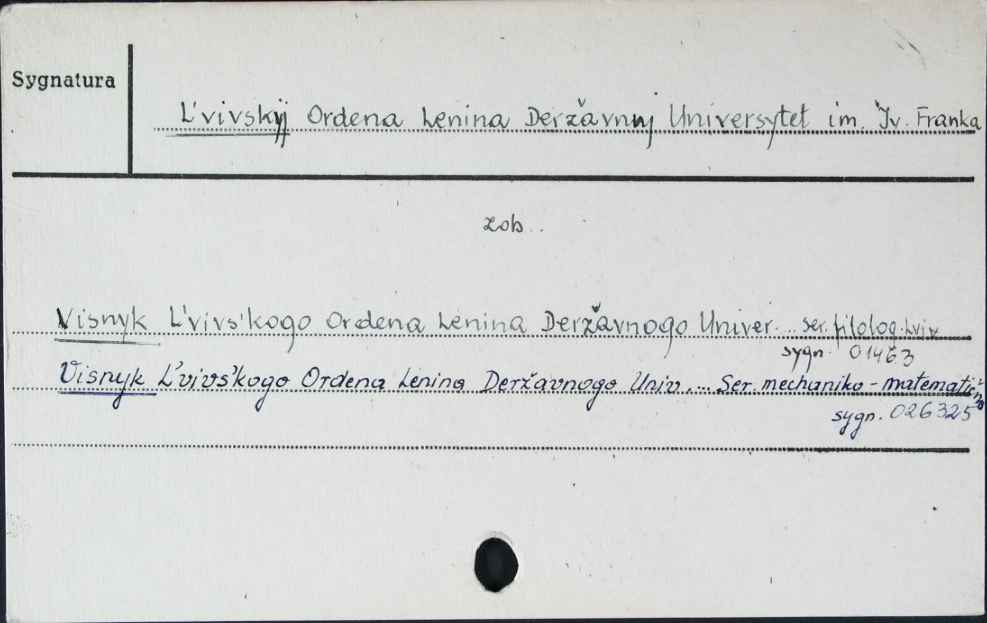 Sygnatura
L'vivskyj Ordena Lenina Deržavnyj Universytet im. Iv. Franka
zob..
Visnyk L'vivs'kogo Ordena Lenina Deržavnogo Univer... ser. filolog. Lviv
sygn. 01463
Visnyk L'vivs'kogo Ordena Lenina Deržavnogo Univ.... Ser. mechaniko-matematična
sygn. 026325